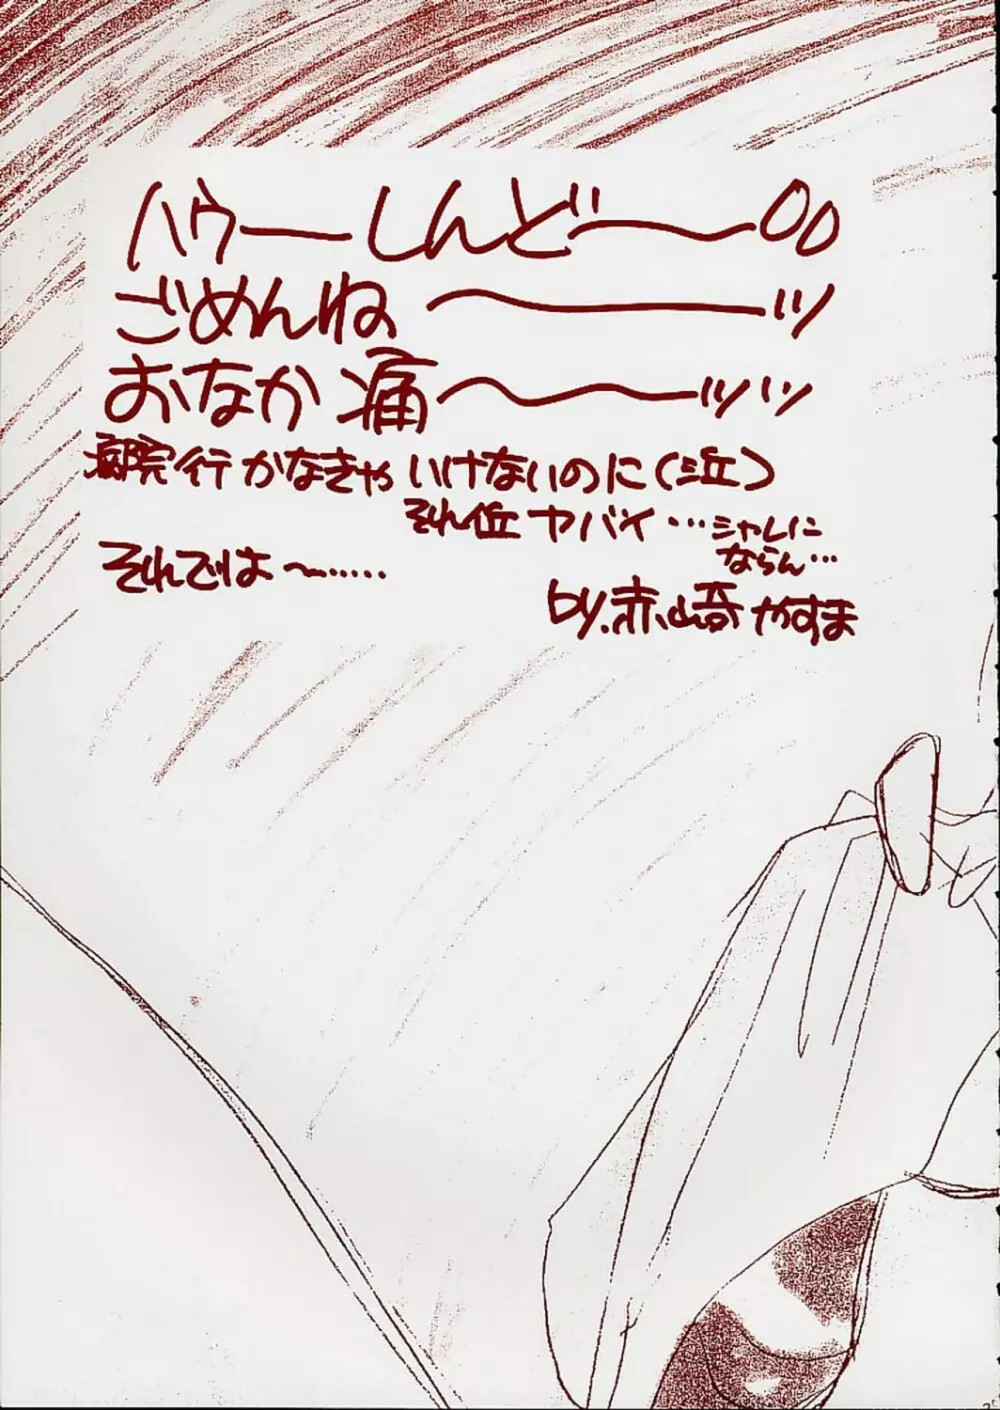 ハウーしんどー〜〇〇
ごめんね〜ッ
おなか痛〜〜ッッ
病院行かなきゃいけないのに(泣)
それ位ヤバイ…シャレに
ならん…
それでは〜……
by.赤山奇やすま